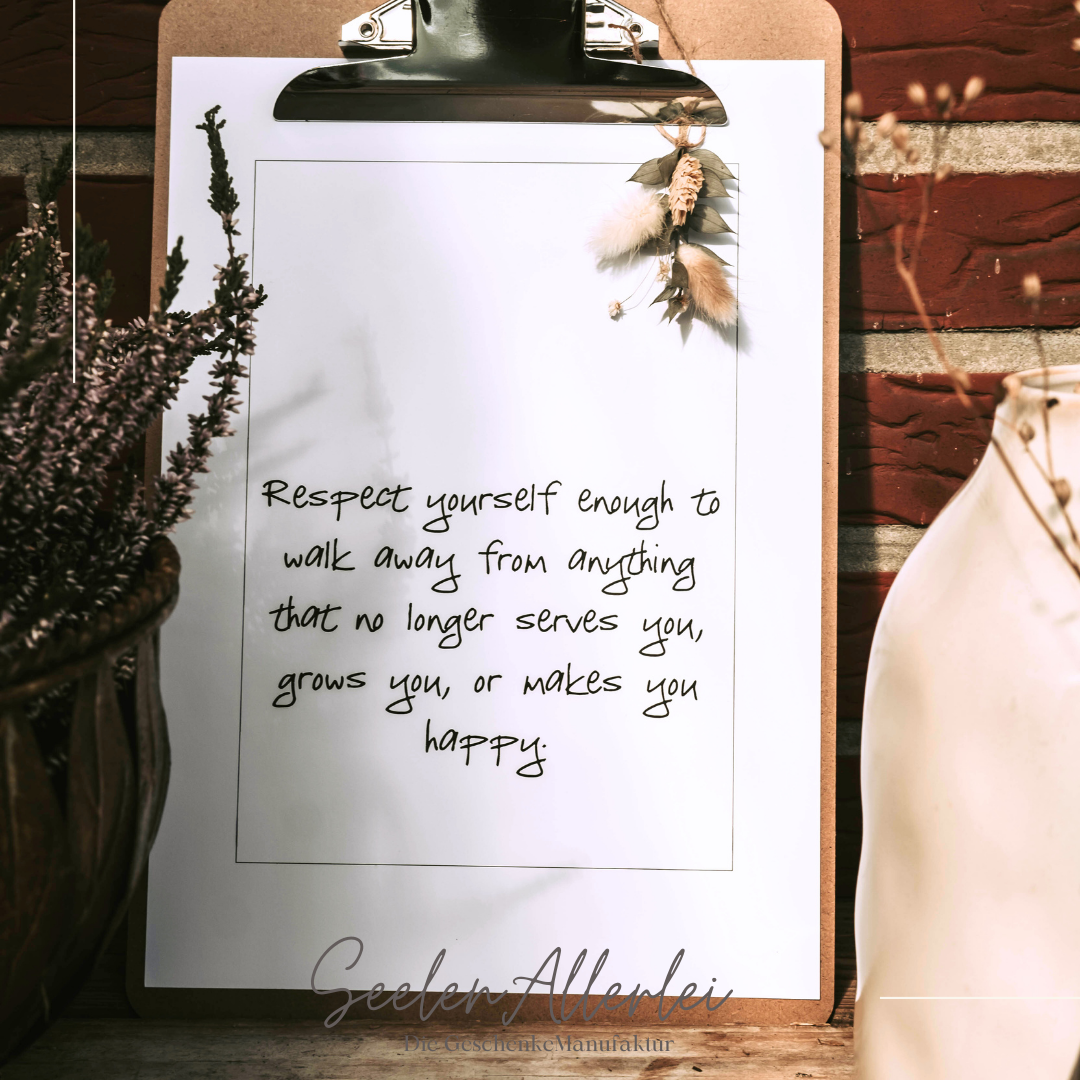 Respect yourself enough to
walk away from anything
that no longer serves you,
grows you, or makes you
happy.
SeelenAllerlei
Die GeschenkeManufaktur